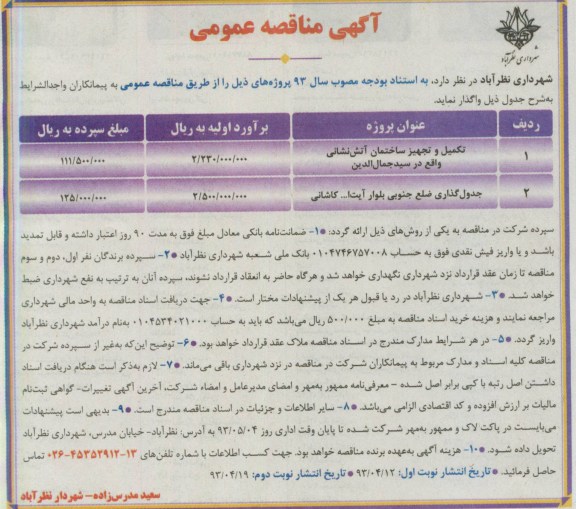 آگهی مناقصه عمومی
شهرداری نظرآباد
شهرداری نظرآباد در نظر دارد، به استناد بودجه مصوب سال ۹۳ پروژه‌های ذیل را از طریق مناقصه عمومی به پیمانکاران واجدالشرایط
به‌شرح جدول ذیل واگذار نماید.
ردیف عنوان پروژه برآورد اولیه به ریال مبلغ سپرده به ریال
۱ تکمیل و تجهیز ساختمان آتش‌نشانی واقع در سیدجمال‌الدین ۲/۲۳۰/۰۰۰/۰۰۰ ۱۱۱/۵۰۰/۰۰۰
۲ جدول‌گذاری ضلع جنوبی بلوار آیت‌ا... کاشانی ۲/۵۰۰/۰۰۰/۰۰۰ ۱۲۵/۰۰۰/۰۰۰
سپرده شرکت در مناقصه به یکی از روش‌های ذیل ارائه گردد: ۱- ضمانت‌نامه بانکی معادل مبلغ فوق به مدت ۹۰ روز اعتبار داشته و قابل تمدید
باشد و یا واریز فیش نقدی فوق به حساب ۰۱۰۴۷۴۶۷۵۷۰۰۸ بانک ملی شعبه شهرداری نظرآباد ۲- سپرده برندگان نفر اول، دوم و سوم
مناقصه تا زمان عقد قرارداد نزد شهرداری نگهداری خواهد شد و هرگاه حاضر به انعقاد قرارداد نشوند، سپرده آنان به ترتیب به نفع شهرداری ضبط
خواهد شد. ۳- شهرداری نظرآباد در رد یا قبول هر یک از پیشنهادات مختار است. ۴- جهت دریافت اسناد مناقصه به واحد مالی شهرداری
مراجعه نمایند و هزینه خرید اسناد مناقصه به مبلغ ۵۰۰/۰۰۰ ریال می‌باشد که باید به حساب ۰۱۰۴۵۳۴۰۲۱۰۰۰ به‌نام درآمد شهرداری نظرآباد
واریز گردد. ۵- در هر شرایط مدارک مندرج در اسناد مناقصه ملاک عقد قرارداد خواهد بود. ۶- توضیح این‌که به‌غیر از سپرده شرکت در
مناقصه کلیه اسناد و مدارک مربوط به پیمانکاران شرکت در مناقصه در نزد شهرداری باقی می‌ماند. ۷- لازم به‌ذکر است هنگام دریافت اسناد
داشتن اصل رتبه با کپی برابر اصل شده - معرفی‌نامه ممهور به‌مهر و امضای مدیرعامل و امضاء شرکت، آخرین آگهی تغییرات- گواهی ثبت‌نام
مالیات بر ارزش افزوده و کد اقتصادی الزامی می‌باشد. ۸- سایر اطلاعات و جزئیات در اسناد مناقصه مندرج است. ۹- بدیهی است پیشنهادات
می‌بایست در پاکت لاک و ممهور به‌مهر شرکت شده تا پایان وقت اداری روز ۹۳/۰۵/۰۴ به آدرس: نظرآباد- خیابان مدرس، شهرداری نظرآباد
تحویل داده شود. ۱۰- هزینه آگهی به‌عهده برنده مناقصه خواهد بود. جهت کسب اطلاعات با شماره تلفن‌های ۱۳-۴۵۳۵۲۹۱۲-۰۲۶ تماس
حاصل فرمائید. تاریخ انتشار نوبت اول: ۹۳/۰۴/۱۲ تاریخ انتشار نوبت دوم: ۹۳/۰۴/۱۹
سعید مدرس‌زاده- شهردار نظرآباد